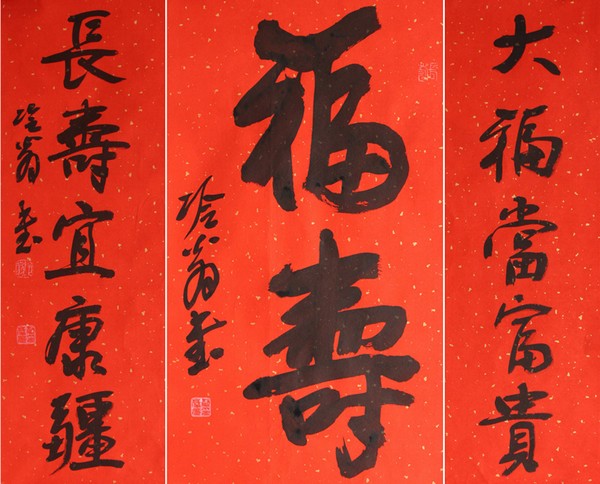 大福當富貴
福壽
冷翁書
長壽宜康疆
冷翁書